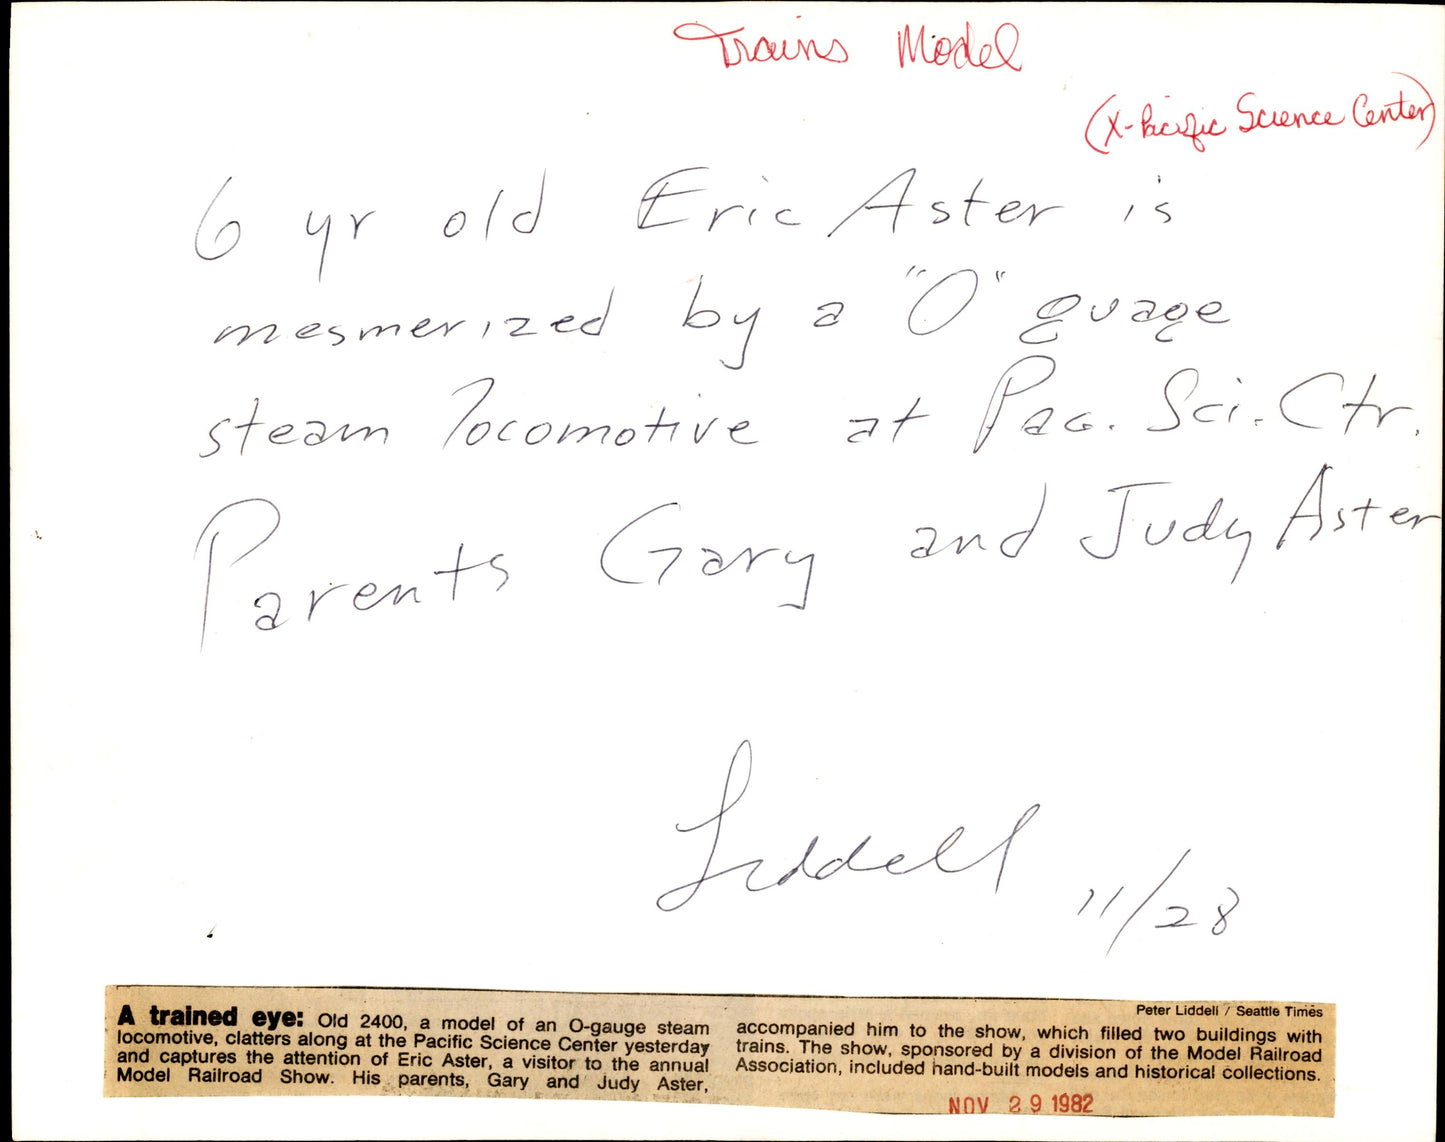 Trains Model
(X-Pacific Science Center)
6 yr old Eric Aster is
mesmerized by a "O" guage
steam locomotive at Pac. Sci. Ctr.
Parents Gary and Judy Aster
Liddell 11/28
Peter Liddell / Seattle Times
A trained eye: Old 2400, a model of an O-gauge steam
locomotive, clatters along at the Pacific Science Center yesterday
and captures the attention of Eric Aster, a visitor to the annual
Model Railroad Show. His parents, Gary and Judy Aster,
accompanied him to the show, which filled two buildings with
trains. The show, sponsored by a division of the Model Railroad
Association, included hand-built models and historical collections.
NOV 29 1982